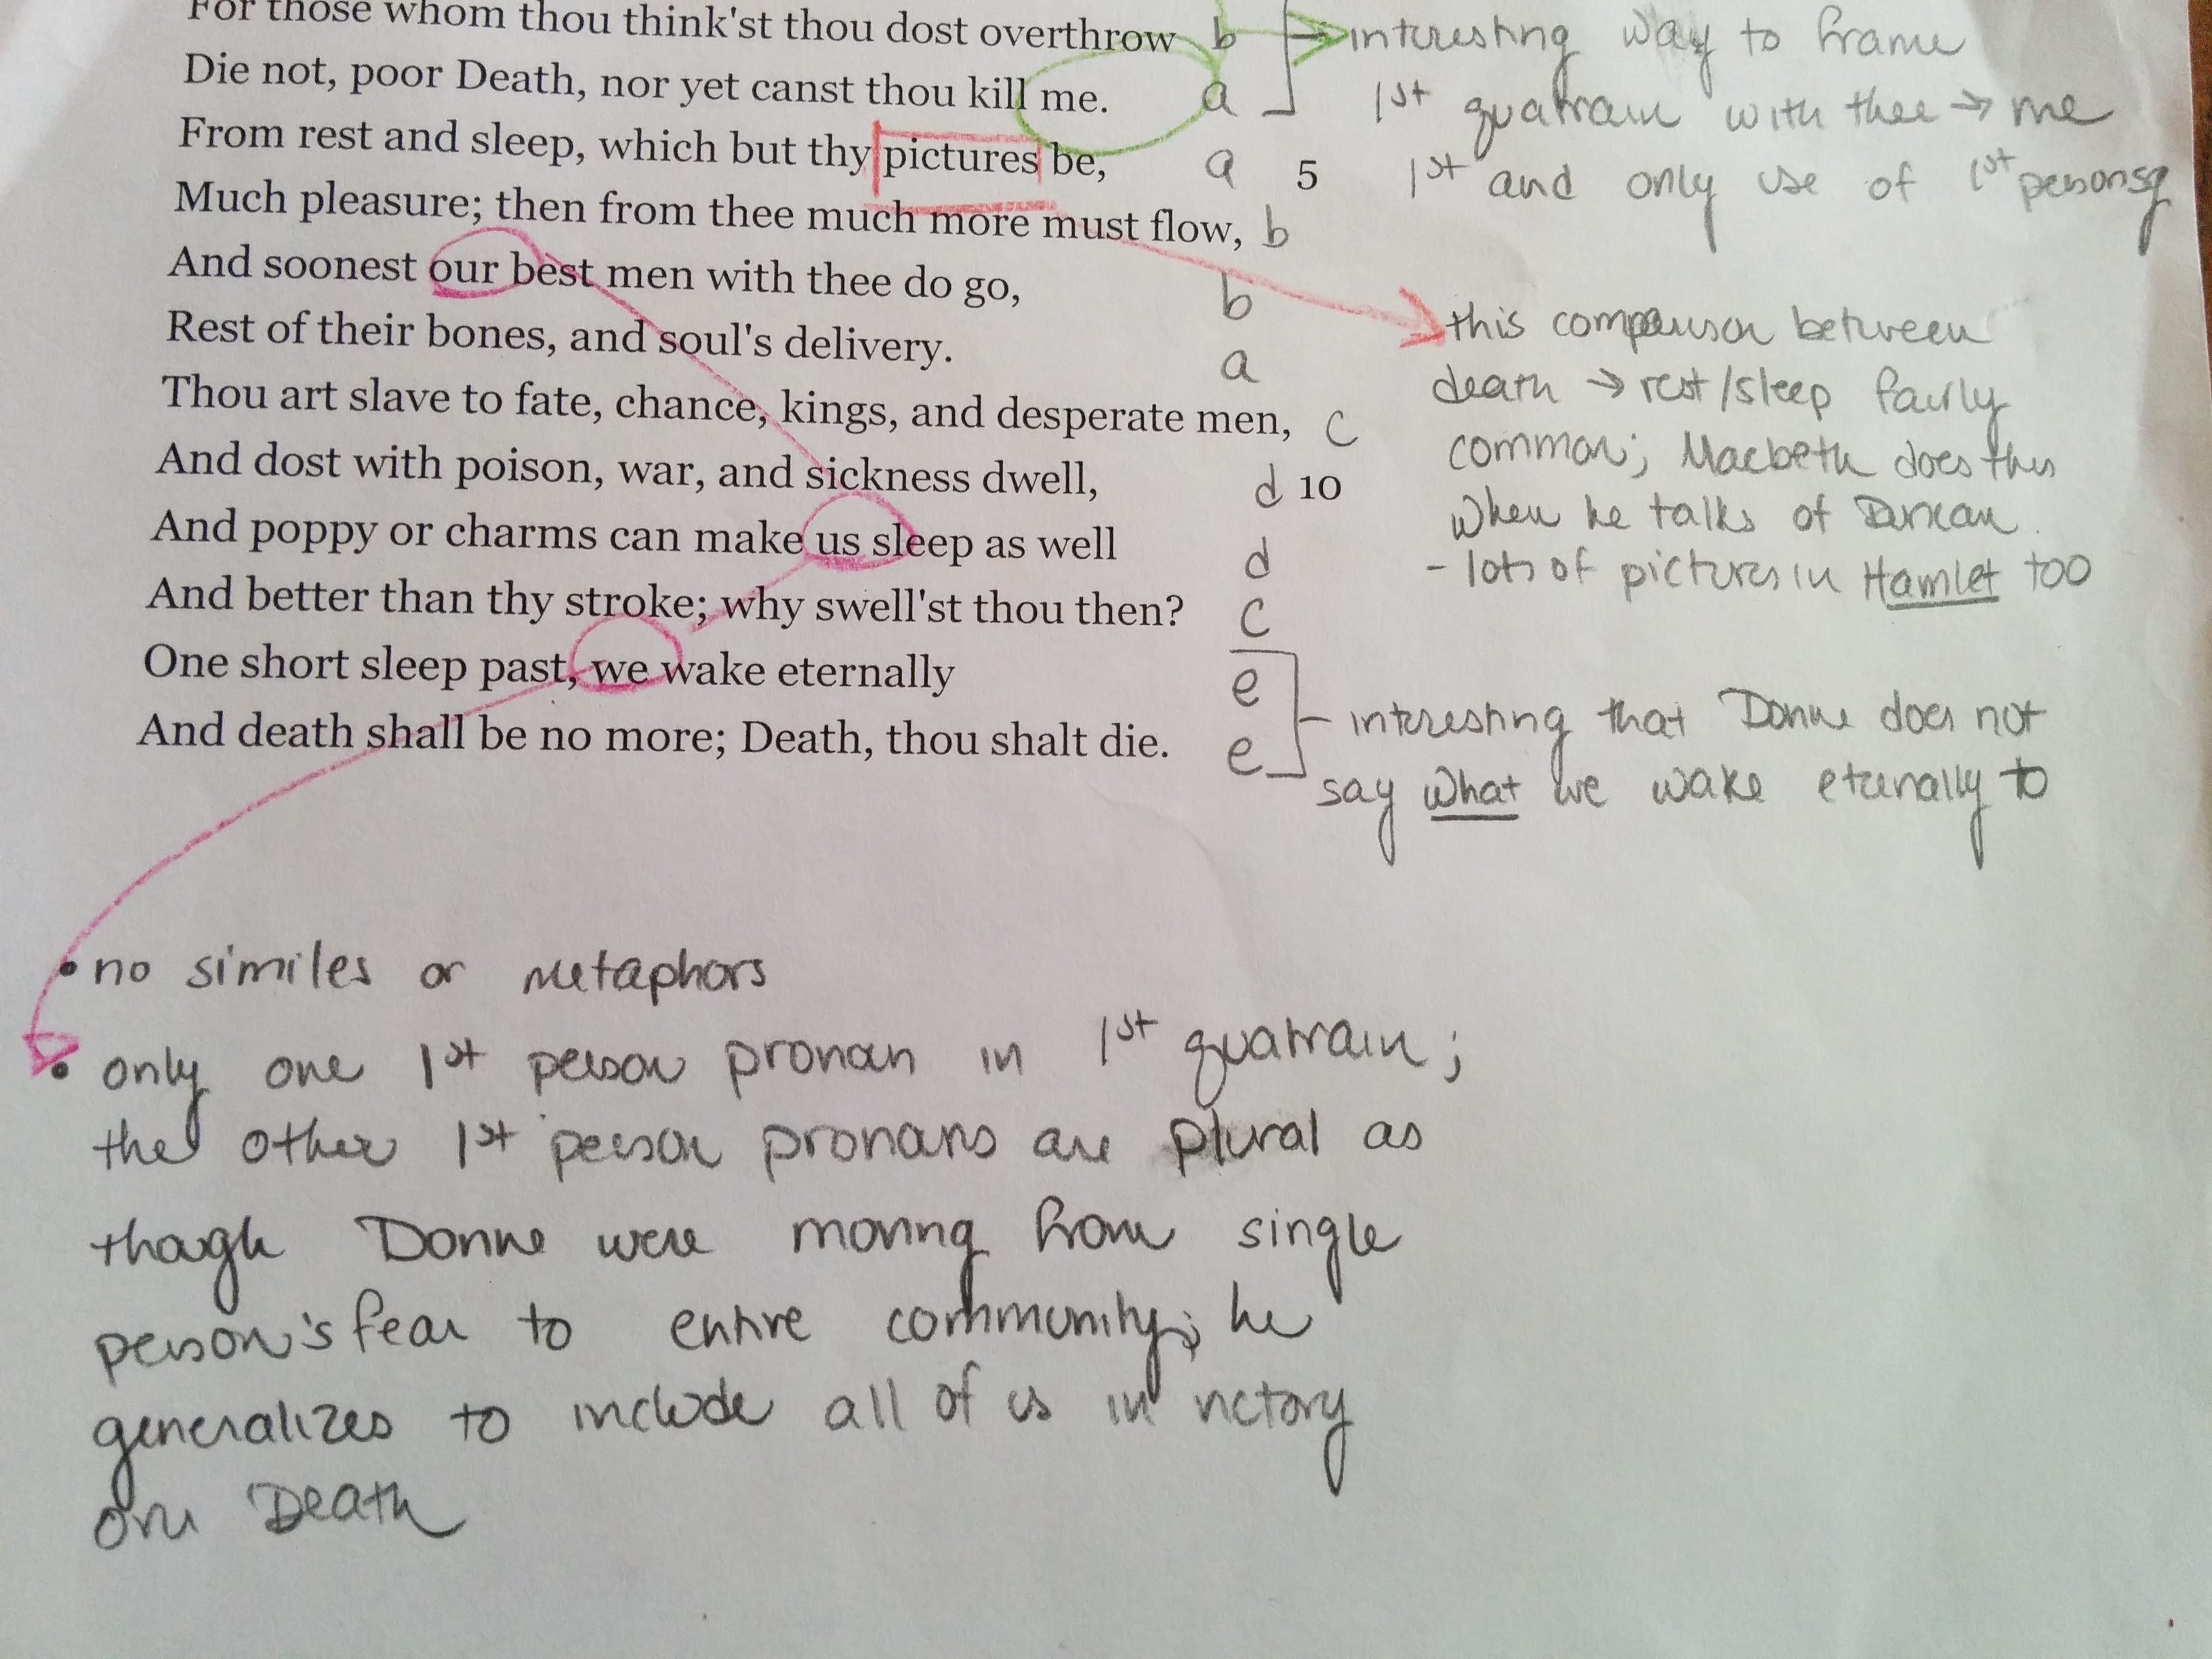 For those whom thou think'st thou dost overthrow b → interesting way to frame
Die not, poor Death, nor yet canst thou kill me. a 1st quatrain with thee → me
From rest and sleep, which but thy pictures be, a 5 1st and only use of 1st person sg
Much pleasure; then from thee much more must flow, b
And soonest our best men with thee do go, b
Rest of their bones, and soul's delivery. a
Thou art slave to fate, chance, kings, and desperate men, c
And dost with poison, war, and sickness dwell, d 10
And poppy or charms can make us sleep as well d
And better than thy stroke; why swell'st thou then? c
One short sleep past, we wake eternally e
And death shall be no more; Death, thou shalt die. e
this comparison between
death → rest/sleep fairly
common; Macbeth does this
when he talks of Duncan.
- lots of pictures in Hamlet too
interesting that Donne does not
say what we wake eternally to
• no similes or metaphors
• only one 1st person pronoun in 1st quatrain;
the other 1st person pronouns are plural as
though Donne were moving from single
person's fear to entire community; he
generalizes to include all of us in victory
over Death